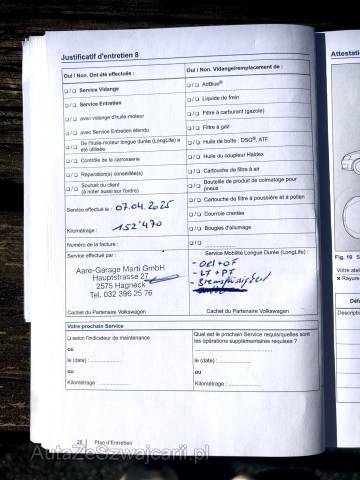 Justificatif d'entretien 8
Oui / Non. Ont été effectués :
Oui / Non. Vidange/remplacement de :
Service Vidange
AdBlue®
Service Entretien
Liquide de frein
avec vidange d'huile-moteur
Filtre à carburant (gazole)
avec Service Entretien étendu
Filtre à gaz
De l'huile-moteur longue durée (LongLife) a
été utilisée
Huile de boîte : DSG®, ATF
Contrôle de la carrosserie
Huile du coupleur Haldex
Réparation(s) conseillée(s)
Cartouche de filtre à air
Souhait du client
(à noter aussi sur l'ordre)
Bouteille de produit de colmatage pour
pneus
Service effectué le : 07.04.2025
Cartouche de filtre à poussière et à pollen
Courroie crantée
Kilométrage : 152'470
Bougies d'allumage
Numéro de la facture :
Service effectué par :
Service Mobilité Longue Durée (LongLife) :
Aare-Garage Marti GmbH
Hauptstrasse 27
2575 Hagneck
Tel. 032 396 25 76
- OEL + OF
- LT + PT
Cachet du Partenaire Volkswagen
Cachet du Partenaire Volkswagen
Votre prochain Service
selon l'indicateur de maintenance
ou
le (date) :
ou
Kilométrage :
Quel est le prochain Service requis/quelles sont
les opérations supplémentaires requises ?
le (date) :
ou
Kilométrage :
28 Plan d'Entretien
Attestation
Fig. 10
Votre atel
Description
AutaZeSzwajcarii.pl